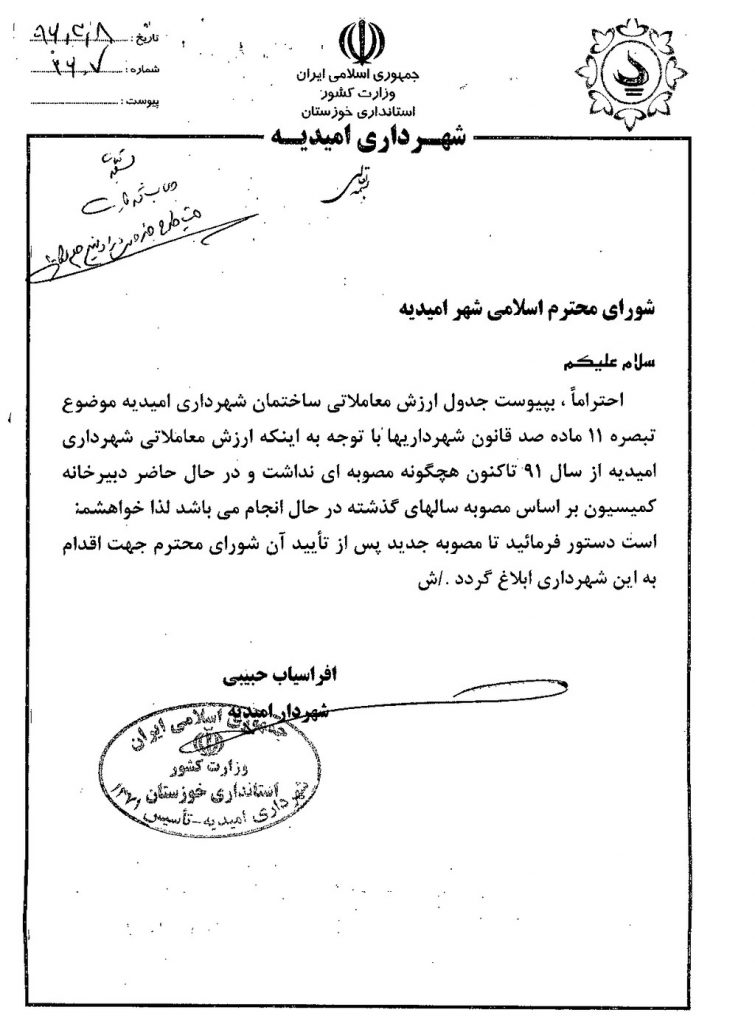 تاریخ : ۹۶,۳,۸
شماره :
پیوست :
جمهوری اسلامی ایران
وزارت کشور
استانداری خوزستان
شهرداری امیدیه
بسمه تعالی
شورای محترم اسلامی شهر امیدیه
سلام علیکم
احتراماً ، بپیوست جدول ارزش معاملاتی ساختمان شهرداری امیدیه موضوع
تبصره ۱۱ ماده صد قانون شهرداریها با توجه به اینکه ارزش معاملاتی شهرداری
امیدیه از سال ۹۱ تاکنون هچگونه مصوبه ای نداشت و در حال حاضر دبیرخانه
کمیسیون بر اساس مصوبه سالهای گذشته در حال انجام می باشد لذا خواهشمند
است دستور فرمائید تا مصوبه جدید پس از تأیید آن شورای محترم جهت اقدام
به این شهرداری ابلاغ گردد ./ش
افراسیاب حبیبی
شهردار امیدیه
جمهوری اسلامی ایران
وزارت کشور
استانداری خوزستان
شهرداری امیدیه-تأسیس ۱۳۷۱